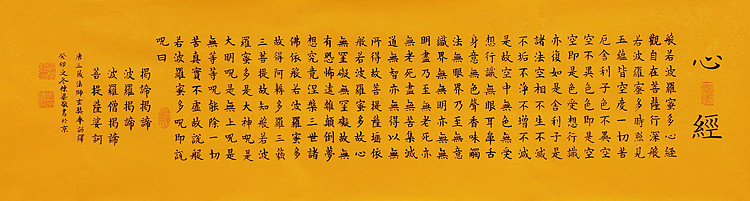 心經
般若波羅蜜多心經
觀自在菩薩行深般
若波羅蜜多時照見
五蘊皆空度一切苦
厄舍利子色不異空
空不異色色即是空
空即是色受想行識
亦復如是舍利子是
諸法空相不生不滅
不垢不淨不增不減
是故空中無色無受
想行識無眼耳鼻舌
身意無色聲香味觸
法無眼界乃至無意
識界無無明亦無無
明盡乃至無老死亦
無老死盡無苦集滅
道無智亦無得以無
所得故菩提薩埵依
般若波羅蜜多故心
無罣礙無罣礙故無
有恐怖遠離顛倒夢
想究竟涅槃三世諸
佛依般若波羅蜜多
故得阿耨多羅三藐
三菩提故知般若波
羅蜜多是大神呪是
大明呪是無上呪是
無等等呪能除一切
苦真實不虛故說般
若波羅蜜多呪即說
呪曰
揭諦揭諦
波羅揭諦
波羅僧揭諦
菩提薩婆訶
唐三藏法師玄奘奉詔譯
癸卯之冬敬書於京